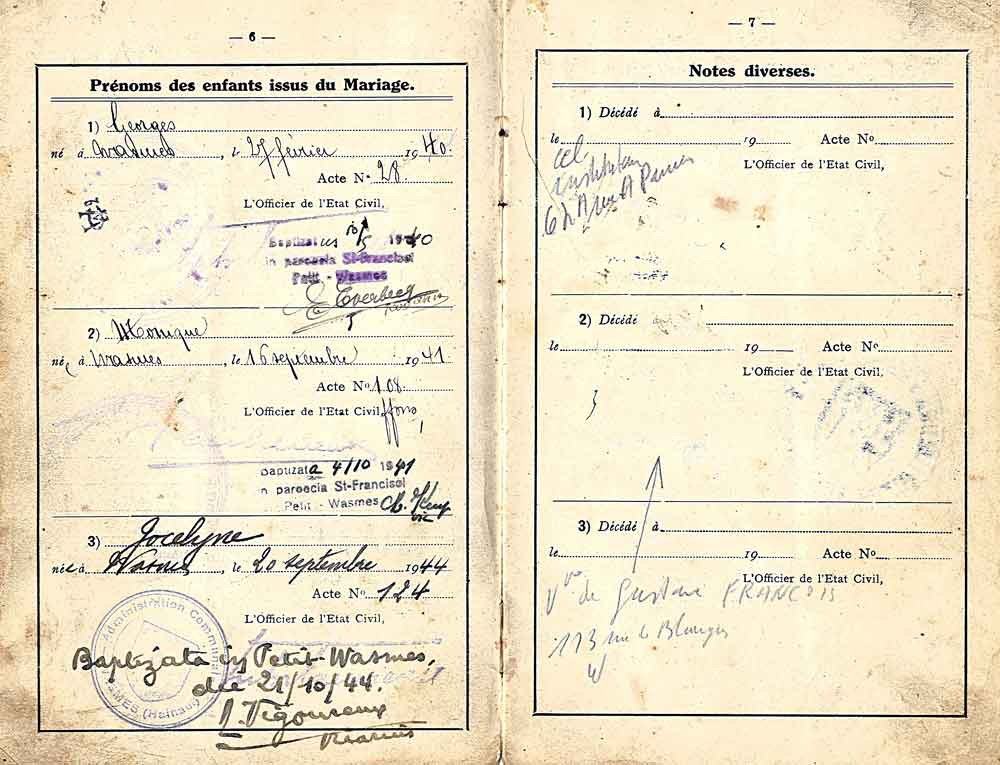 — 6 —
Prénoms des enfants issus du Mariage.
1) Georges
né à Wasmes, le 27 février 1940.
Acte No 28.
L'Officier de l'Etat Civil,
Baptizatus 1940
in paroecia St-Francisci
Petit - Wasmes
2) Monique
née à Wasmes, le 16 septembre 1941.
Acte No 108.
L'Officier de l'Etat Civil, ffons,
Baptizata 4/10 1941
in paroecia St-Francisci
Petit - Wasmes
3) Jocelyne
née à Wasmes, le 20 septembre 1944
Acte No 124
L'Officier de l'Etat Civil,
Administration Communale
WASMES (Hainaut)
Baptizata in Petit-Wasmes,
die 21/10/44.
J. Vigoureux
vicarius
— 7 —
Notes diverses.
1) Décédé à
le 19 Acte No
L'Officier de l'Etat Civil,
2) Décédé
le 19 Acte No
L'Officier de l'Etat Civil,
3) Décédé à
le 19 Acte No
L'Officier de l'Etat Civil,
Vve de Gustave FRANCOIS
113 rue de